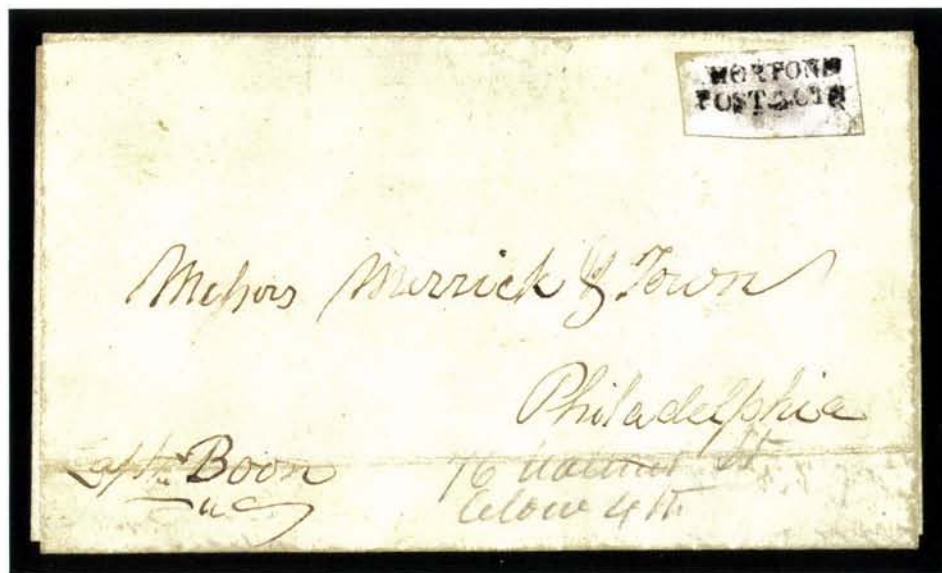 MORTON'S
POST 2 CTS
Messrs Merrick & Town
Philadelphia
Capt. Boon
76 Walnut St
below 4th